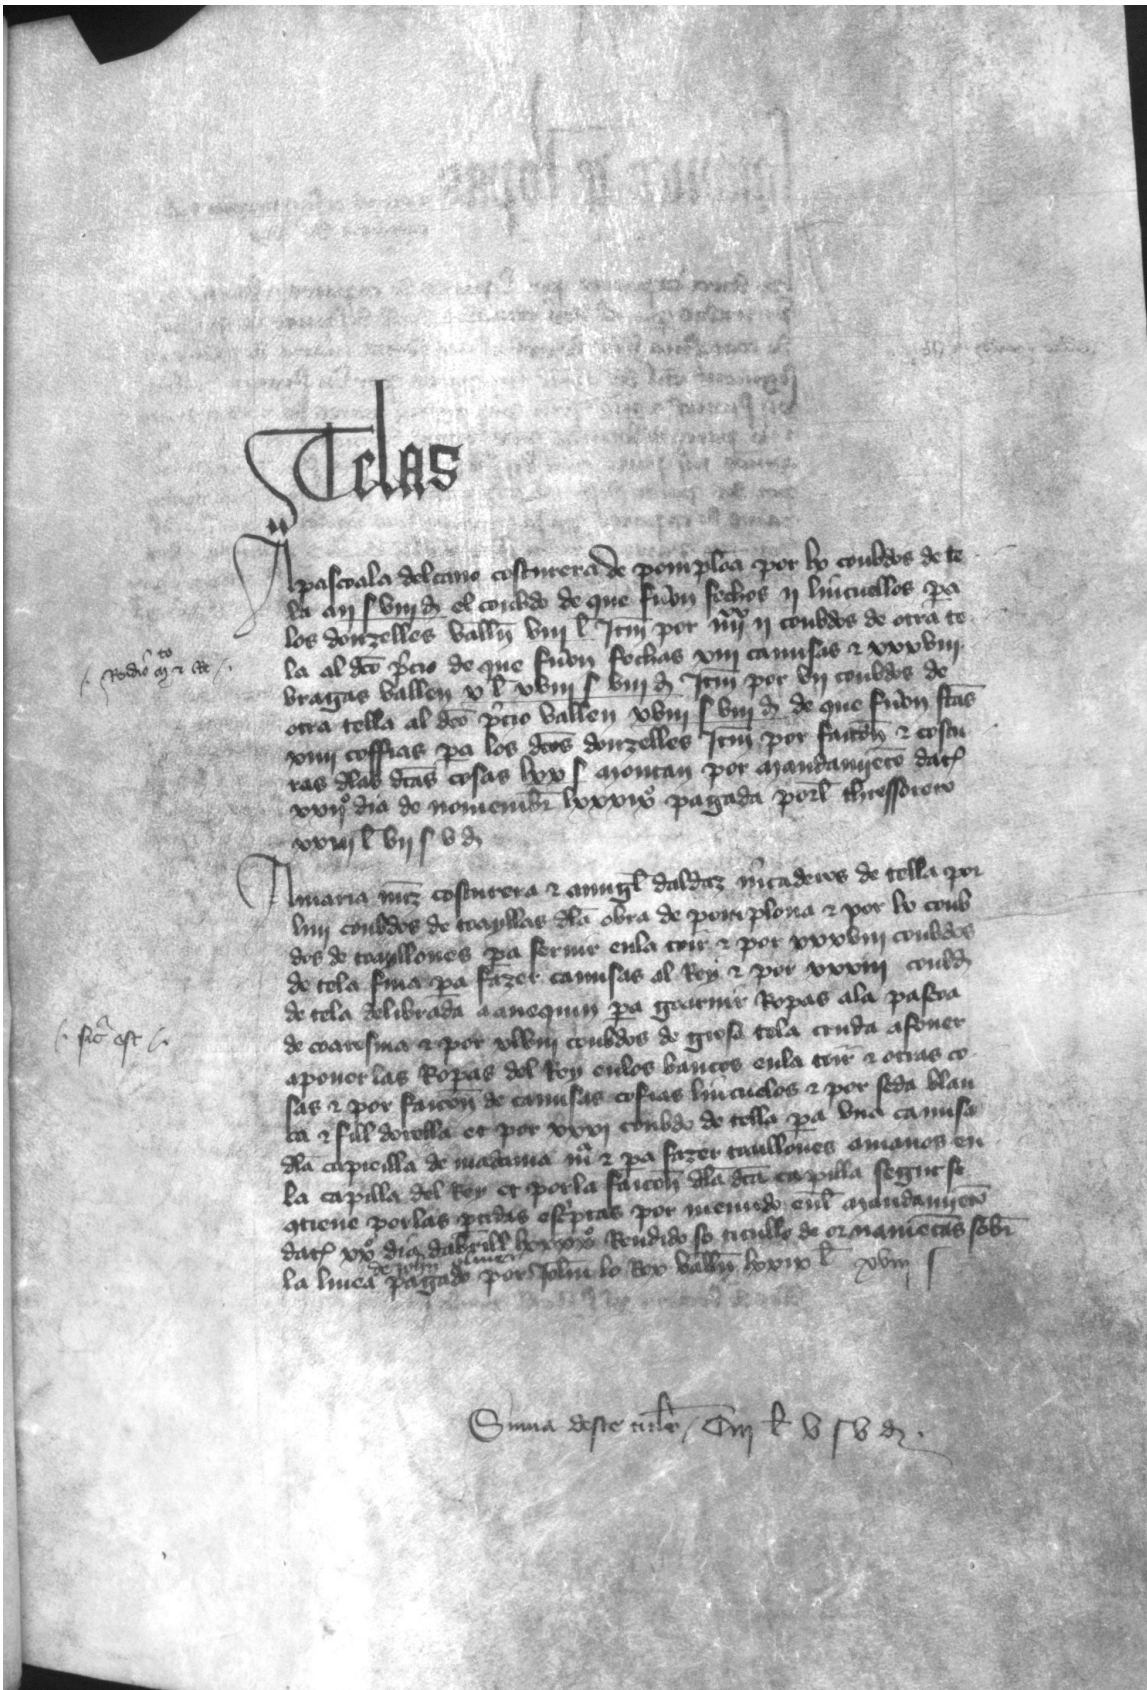 Telas
A pascoala del cano costurera de pomplōa por lv coubdos de te
la a ii s viii d̄ el coubdo de que fuēn fechos ii lincuellos pa
los donzelles vallēn viii l Itm̄ por iiiixx ii coubdos de otra te
la al dc̄o p̄cio de que fuēn fechas xiii camisas & xxxviii
Redio m to & Re
bragas vallen x l xviii s viii d̄ Itm̄ por vii coubdos de
otra tella al dc̄o p̄cio vallen xviii s viii d̄ de que fuēn fc̄as
xiiii coffias pa los dc̄os donzelles Itm̄ por faicōn & costu
ras dlas dc̄as cosas lxx s montan por mandamiēto dat
xxijo dia de nouiembr lxxxixo pagada porl thessorero
xxiii l vii s v d̄
A maria mrz̄ costurera & a migl̄ daldaz m̄caderos de tella por
liiii coubdos de toayllas dla obra de pomplona & por lv coub
dos de toayllones pa seruir en la cort & por xxxviii coubdos
de tela fina pa fazer camisas al Rey & por xxxiii coubd̄
de tela deliurada a anequin pa goarnir Ropas a la pascoa
sic est
de coaresma & por xlviii coubdos de grosa tela cruda
a poner las Ropas del Rey en los bancos en la cort & otras co
sas & por faicōn de camisas cofias lincuelos & por seda blan
ca & fill de tella et por xxxi coubdo de tella pa vna camisa
dla capieilla de madama & pa fazer toaillones a manos en
la capilla del Rey et por la faicōn dla dc̄a capilla segunt se
9tiene por las p̄tidas esc̄ptas por menudo enl mandamiēto
dat xxo dia dabrill lxxxxo Rendido so titullo de ornamientas sobr
de John
la linea pagado por John lo Rox vallēn lxxix l xviii s
Suma deste titlo Ciii l v s v d̄